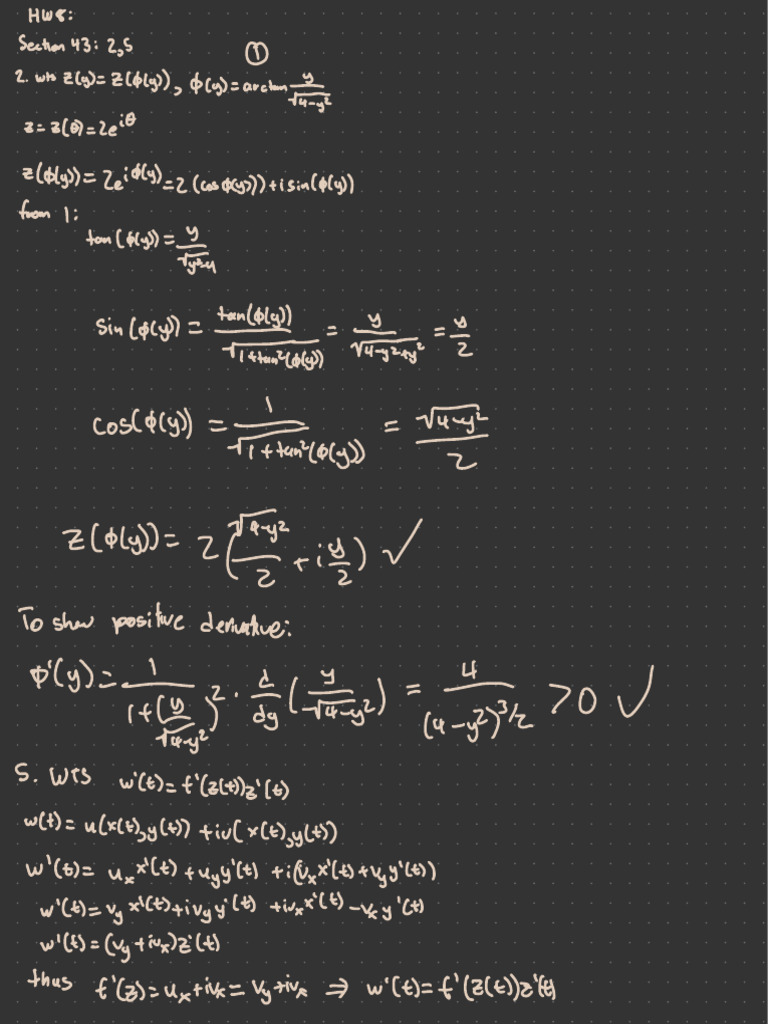 HW8:
Section 43: 2,5
①
2. wts z(y)=Z(ϕ(y)), ϕ(y)=arctan y/√(4-y²)
z=z(θ)=2e^{iθ}
z(ϕ(y))=2e^{iϕ(y)}=2(cosϕ(y)))+isin(ϕ(y))
from 1:
tan(ϕ(y))=y/√(y²-4)
Sin(ϕ(y))=tan(ϕ(y))/√(1+tan²(ϕ(y))) = y/√(4-y²+y²) = y/2
cos(ϕ(y)) = 1/√(1+tan²(ϕ(y))) = √(4-y²)/2
Z(ϕ(y))= 2(√(4-y²)/2 + i y/2) ✓
To show positive derivative:
ϕ'(y)= 1/(1+(y/√(4-y²))²) · d/dy (y/√(4-y²)) = 4/(4-y²)^{3/2} >0 ✓
5. WTS w'(t)=f'(z(t))z'(t)
w(t)=u(x(t),y(t))+iv(x(t),y(t))
w'(t)= u_x x'(t) +u_y y'(t) +i(v_x x'(t)+v_y y'(t))
w'(t)=v_y x'(t)+iv_y y'(t) +iv_x x'(t)-v_x y'(t)
w'(t)=(v_y+iv_x)z'(t)
thus f'(z)=u_x+iv_x=v_y+iv_x ⇒ w'(t)=f'(z(t))z'(t)